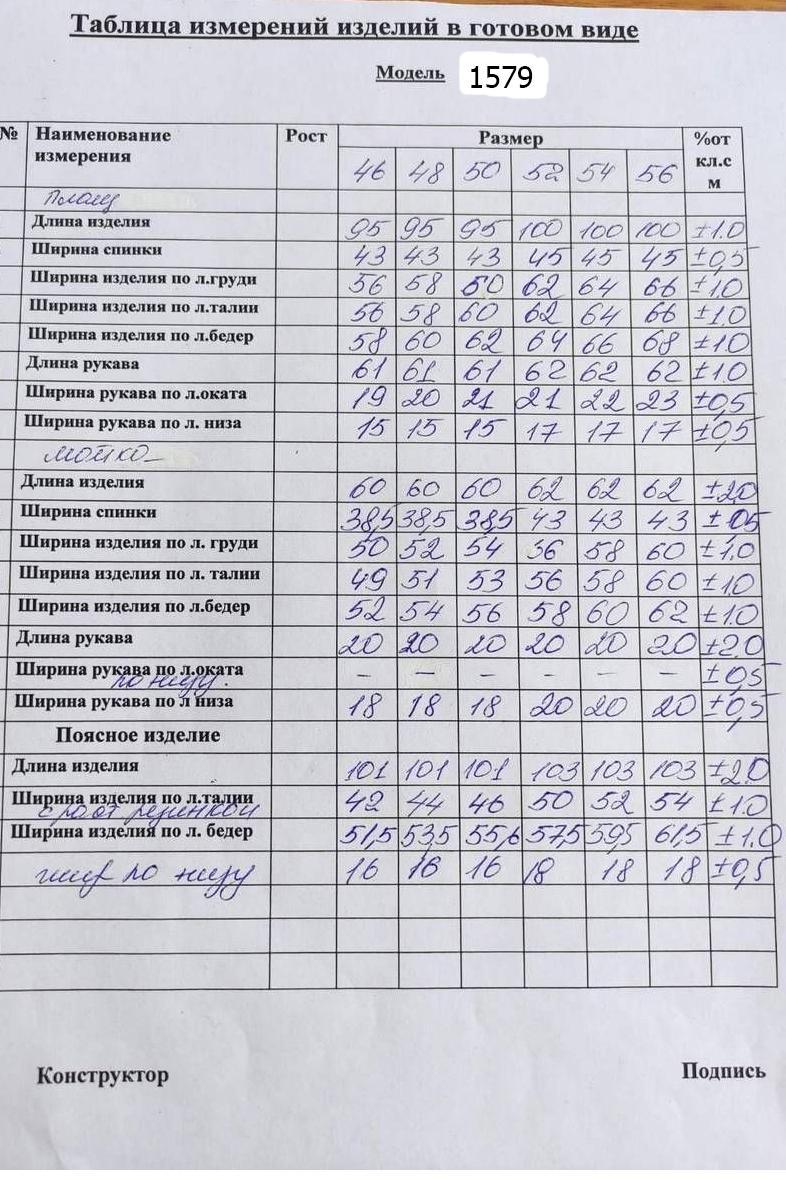 Таблица измерений изделий в готовом виде
Модель 1579
№ Наименование измерения Рост Размер %от кл.с м
46 48 50 52 54 56
Плащ
Длина изделия 95 95 95 100 100 100 ±1.0
Ширина спинки 43 43 43 45 45 45 ±0,5
Ширина изделия по л.груди 56 58 50 62 64 66 ±1.0
Ширина изделия по л.талии 56 58 60 62 64 66 ±1.0
Ширина изделия по л.бедер 58 60 62 64 66 68 ±1.0
Длина рукава 61 61 61 62 62 62 ±1.0
Ширина рукава по л.оката 19 20 21 21 22 23 ±0,5
Ширина рукава по л. низа 15 15 15 17 17 17 ±0,5
майка
Длина изделия 60 60 60 62 62 62 ±2.0
Ширина спинки 38,5 38,5 38,5 43 43 43 ±0,5
Ширина изделия по л. груди 50 52 54 56 58 60 ±1.0
Ширина изделия по л. талии 49 51 53 56 58 60 ±1.0
Ширина изделия по л.бедер 52 54 56 58 60 62 ±1.0
Длина рукава 20 20 20 20 20 20 ±2.0
Ширина рукава по л.оката – – – – – – ±0,5
по низу.
Ширина рукава по л низа 18 18 18 20 20 20 ±0,5
Поясное изделие
Длина изделия 101 101 101 103 103 103 ±2.0
Ширина изделия по л.талии 42 44 46 50 52 54 ±1.0
резинкой
Ширина изделия по л. бедер 51,5 53,5 55,6 57,5 59,5 61,5 ±1.0
шир по низу 16 16 16 18 18 18 ±0,5
Конструктор Подпись